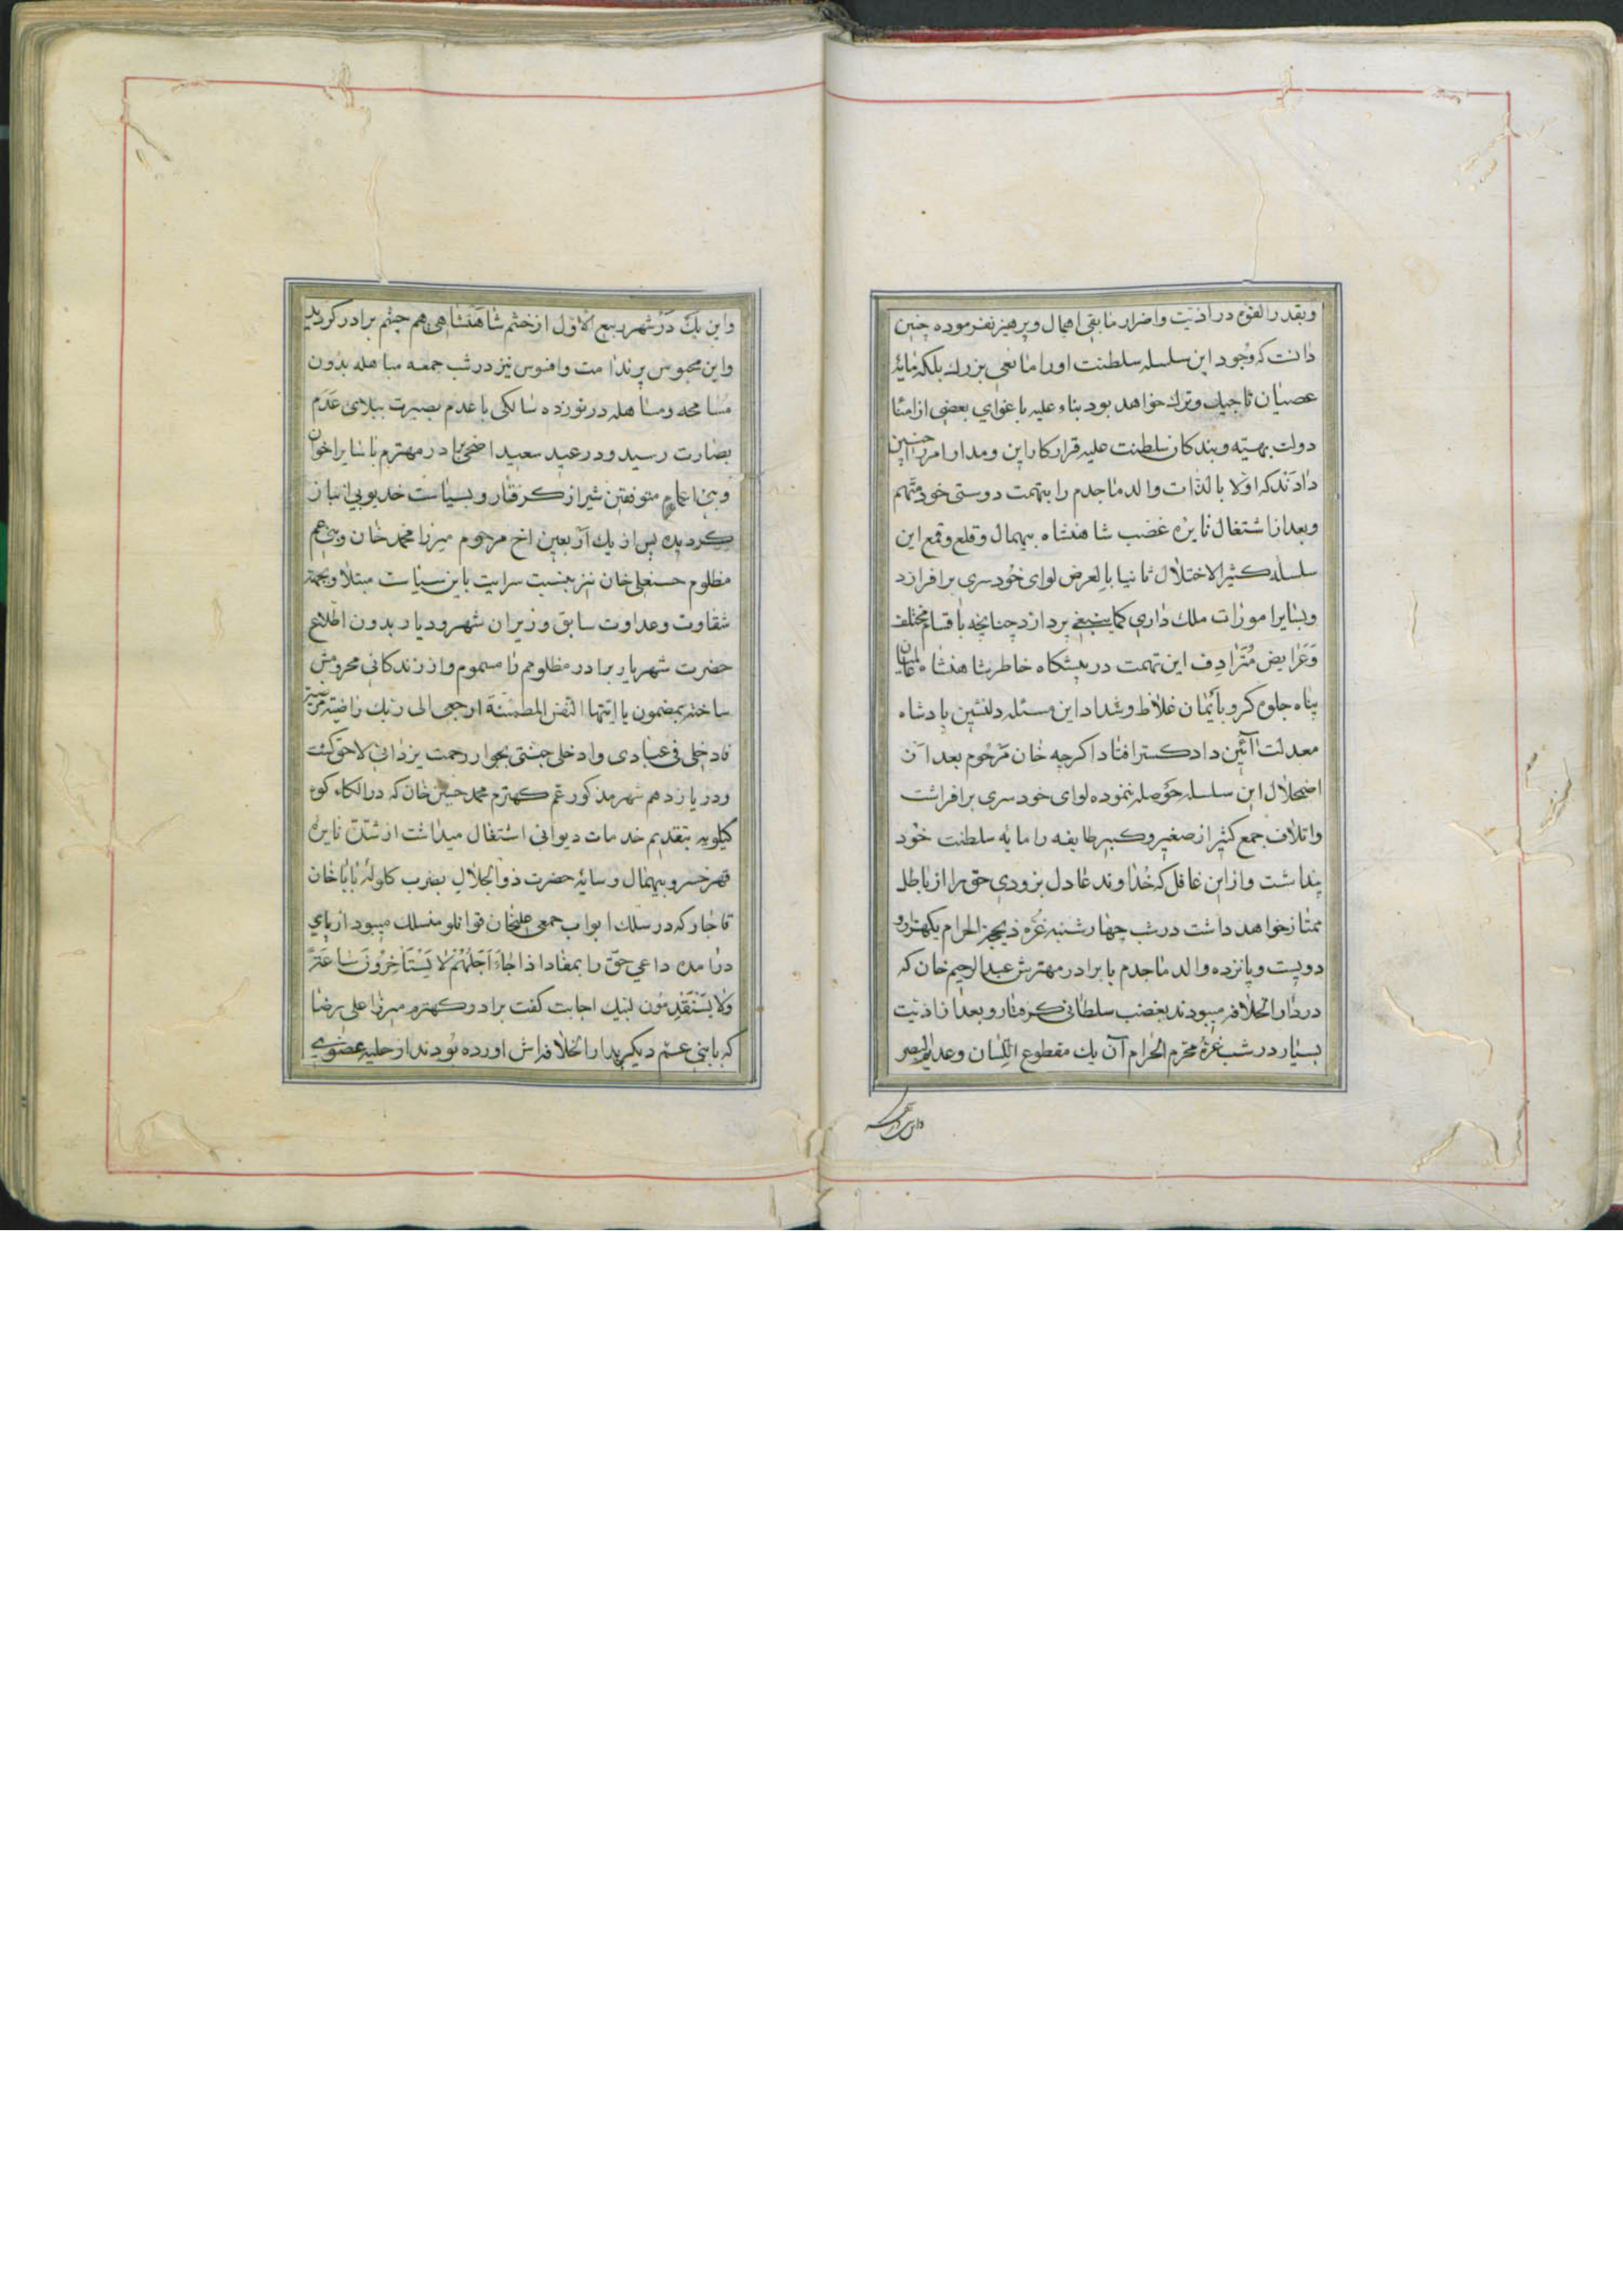 وبقدر القوه در اذیت واضرار مابقی اهمال وپرهیز نفرموده چنین
دانست که وجود این سلسله سلطنت اورا مانعی بزرك بلکه مایهٔ
عصیان تاجیك وترك خواهد بود بناء علیه باغوای بعضی از امنا
دولت بهیته وبندکان سلطنت علیه قرار کار این ومدار امر را چنین
دادند که اولا بالذات والد ماجدم را بتهمت دوستی خود متهم
وبعد از اشتغال نایره غضب شاهنشاه بیهمال وقلع وقمع این
سلسله کثیر الاختلال ثانیا بالعرض لوای خودسری برافرازد
وبسایر امورات ملك داری کما ینبغی پردازد چنانچه باقسام مختلف
وعرایض مترادف این تهمت در پیشکاه خاطر شاهنشاه
پناه جلوه کر وبأیمان غلاظ وشداد این مسئله دلنشین پادشاه
معدلت آئین دادکستر افتاد اکرچه خان مرحوم بعد از
اضمحلال این سلسله حوصله ننموده لوای خودسری برافراشت
واتلاف جمع کثیر از صغیر وکبیر طایفه را مایه سلطنت خود
پنداشت واز این غافل که خداوند عادل بزودی حق را از باطل
ممتاز خواهد داشت در شب چهارشنبه غره ذیحجة الحرام یکهزار و
دویست وپانزده والد ماجدم با برادر مهترش عبدالرحیم خان که
در دار الخلافه میبودند بغضب سلطانی کرفتار وبعد از اذیت
بسیار در شب غرهٔ محرم الحرام آن یك مقطوع اللسان وعدیم البصر
واین یك در شهر ربیع الاول از خشم شاهنشاهی هم چشم برادر کردید
واین محبوس پر ندامت وافسوس نیز در شب جمعه مباهله بدون
مسامحه ومساهله در نوزده سالکی باعدم بصیرت ببلای عدم
بصارت رسید ودر عید سعید اضحی برادر مهترم با سایر اخوان
وبنی اعمام متوقفین شیراز کرفتار وبسیاست خدیوبی انباز
کردیده پس از یك اربعین اخ مرحوم میرزا محمد خان وبنی عم
مظلوم حسنعلی خان نیز بنسبت سرایت باین سیاست مبتلا وبجهة
شقاوت وعداوت سابق وزیران شهر ودیار بدون اطلاع
حضرت شهریار برادر مظلومم را مسموم واز زندکانی محرومش
ساخته بمضمون یا ایتها النفس المطمئنة ارجعی الی ربك راضیة مرضیة
فادخلی فی عبادی وادخلی جنتی بجوار رحمت یزدانی لاحق کشت
ودر یازدهم شهر مذکور عم کهترم محمد حسین خان که در الکاء کوه
کیلویه بتقدیم خدمات دیوانی اشتغال میداشت از شدت نایره
قهر خسرو بیهمال وسایهٔ حضرت ذوالجلال بضرب کلولهٔ بابا خان
قاجار که در سلك ابواب جمعی علیخان قوانلو منسلك میبود از پای
درامده داعی حق را بمفاد اذا جاء اجلهم لا یستأخرون ساعة
ولا یستقدمون لبیك اجابت کفت برادر کهترم میرزا علی رضا
که با بنی عم دیکر بدار الخلافه اش اورده بودند از حلیه عضوی